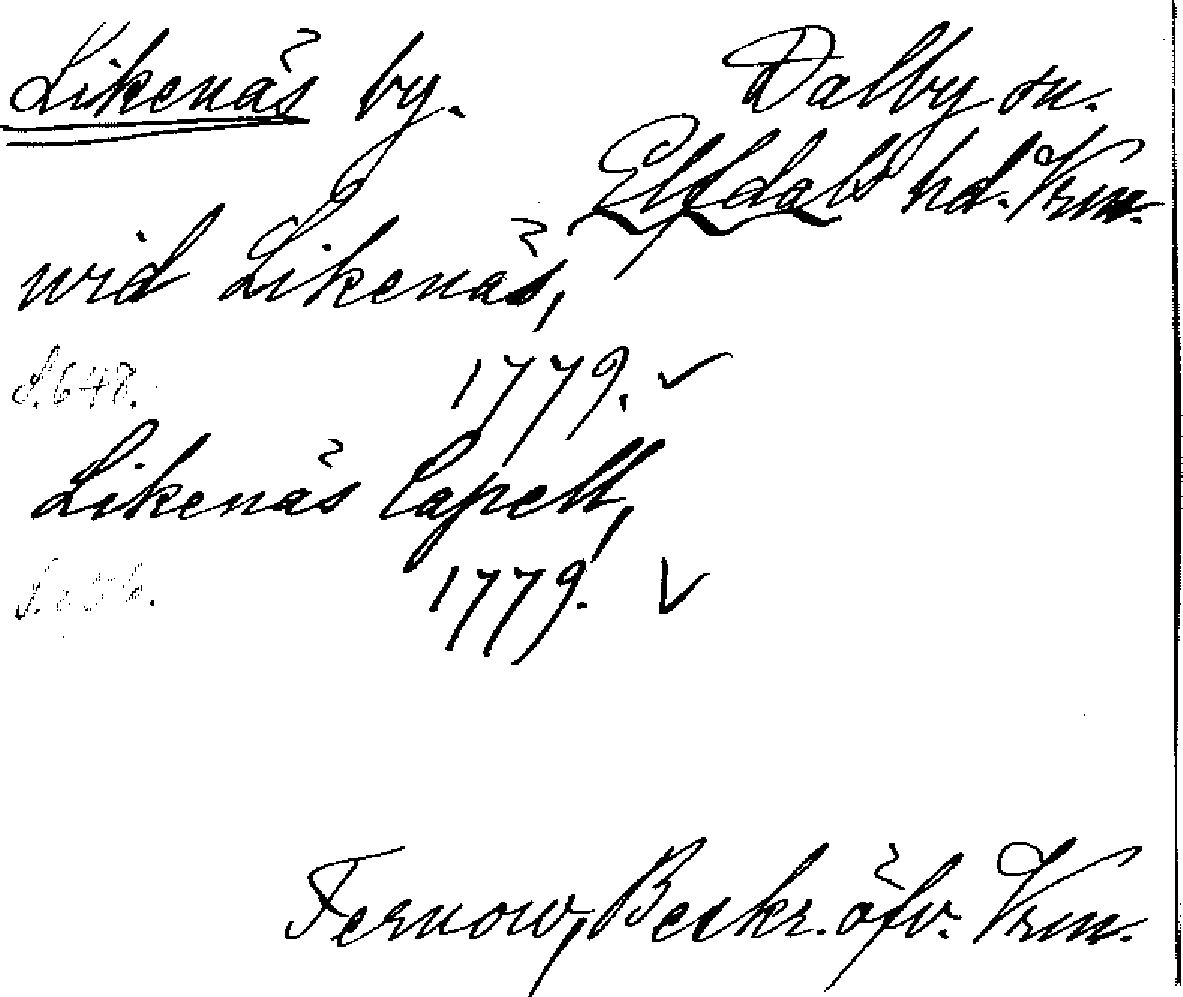 Likenäs by.
Dalby sn.
Elfdals hd. Vrm.
wid Likenäs,
S. 648.
1779. ✓
Likenäs Capell,
1779. ✓
Fernow, Beskr. öfv. Vrm.